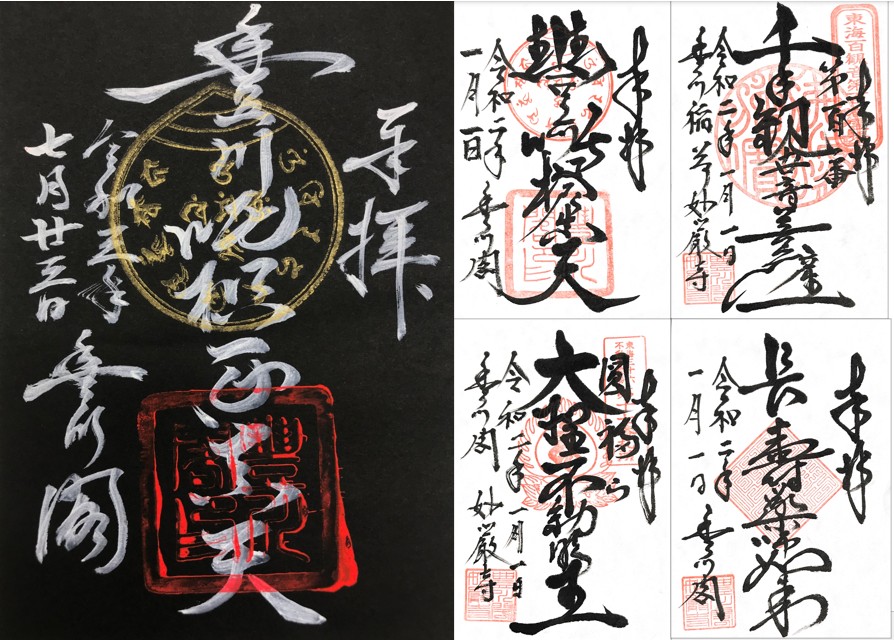 奉拝
豊川吒枳尼真天
七月廿三日
豊川閣
奉拝
豊川吒枳尼真天
令和二年 豊川閣
一月一日
東海百観音
奉拝
第百番
千手観世音菩薩
令和二年一月一日
豊川稲荷妙厳寺
奉拝
圓福山
大聖不動明王
令和二年一月一日
豊川閣 妙厳寺
奉拝
長寿薬師如来
令和二年 豊川閣
一月一日